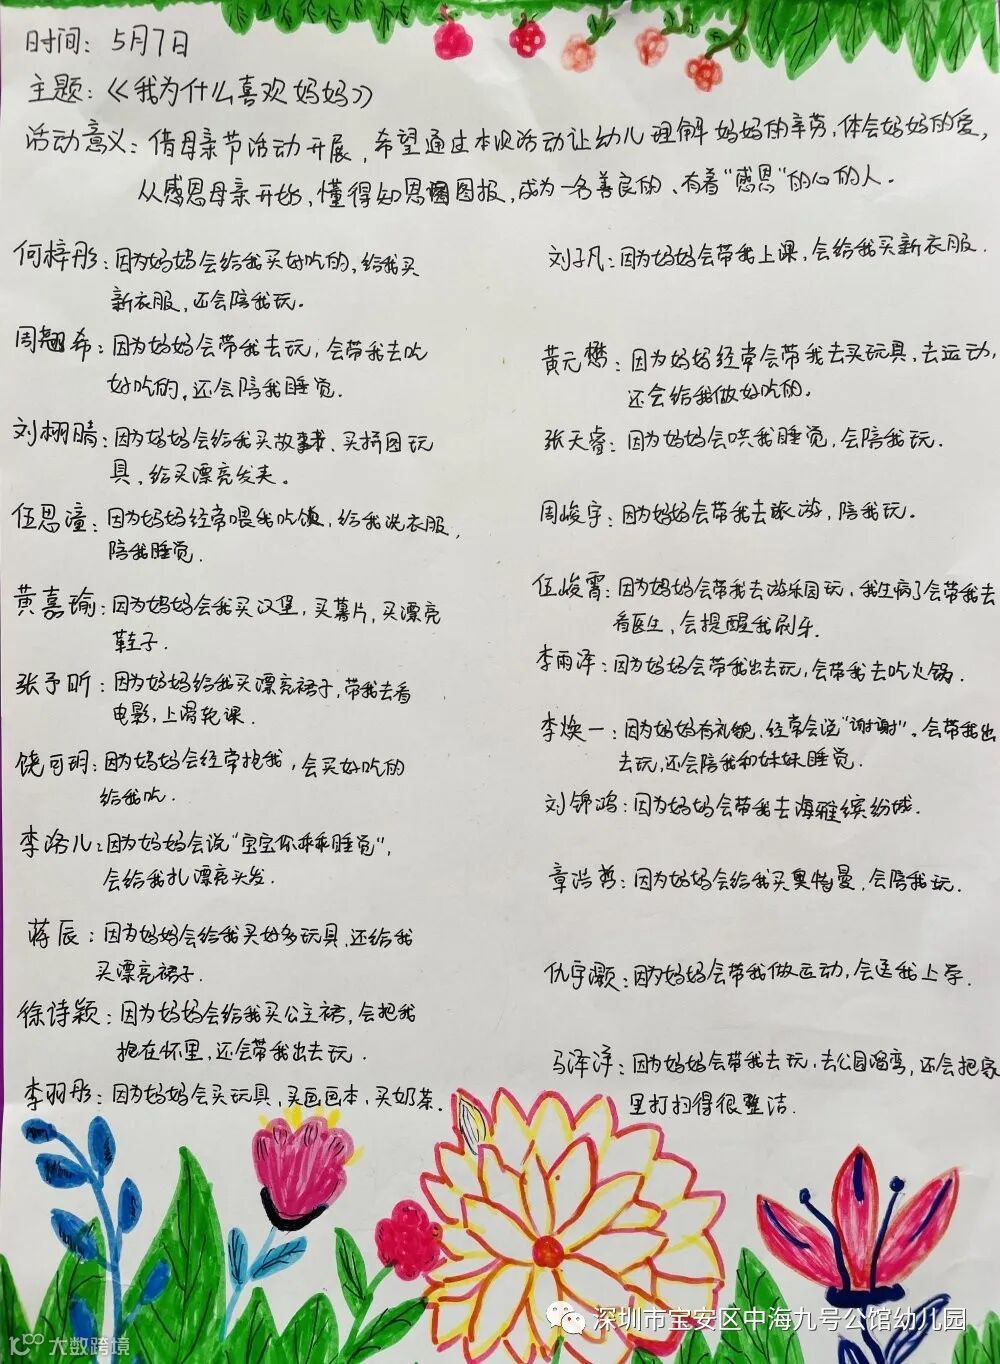 时间：5月7日
主题：《我为什么喜欢妈妈》
活动意义：借母亲节活动开展，希望通过本次活动让幼儿理解妈妈的辛劳，体会妈妈的爱，
从感恩母亲开始，懂得知恩图报，成为一名善良的、有着“感恩”的心的人。
何梓彤：因为妈妈会给我买好吃的，给我买
新衣服，还会陪我玩。
周翘希：因为妈妈会带我去玩，会带我去吃
好吃的，还会陪我睡觉.
刘栩晴：因为妈妈会给我买故事书、买拼图玩
具，给买漂亮发夹。
伍思潼：因为妈妈经常喂我吃饭，给我洗衣服，
陪我睡觉.
黄嘉瑜：因为妈妈会我买汉堡，买薯片，买漂亮
鞋子.
张予昕：因为妈妈给我买漂亮裙子，带我去看
电影，上滑轮课.
饶可玥：因为妈妈会经常抱我，会买好吃的
给我吃.
李洛儿：因为妈妈会说“宝宝你乖乖睡觉”，
会给我扎漂亮头发.
蒋辰：因为妈妈会给我买好多玩具，还给我
买漂亮裙子.
徐诗颖：因为妈妈会给我买公主裙，会把我
抱在怀里，还会带我出去玩.
李羽彤：因为妈妈会买玩具，买画画本，买奶茶.
刘子凡：因为妈妈会带我上课，会给我买新衣服.
黄元懋：因为妈妈经常会带我去买玩具，去运动，
还会给我做好吃的。
张天睿：因为妈妈会哄我睡觉，会陪我玩.
周峻宇：因为妈妈会带我去旅游，陪我玩。
伍峻霄：因为妈妈会带我去游乐园玩，我生病了会带我去
看医生，会提醒我刷牙.
李雨泽：因为妈妈会带我出去玩，会带我去吃火锅.
李焕一：因为妈妈有礼貌，经常会说“谢谢”。会带我出
去玩，还会陪我和妹妹睡觉.
刘锦鸿：因为妈妈会带我去海雅缤纷城.
章浩哲：因为妈妈会给我买奥特曼，会陪我玩.
仇宇灏：因为妈妈会带我做运动，会送我上学.
马泽洋：因为妈妈会带我去玩，去公园溜弯，还会把家
里打扫得很整洁.
深圳市宝安区中海九号公馆幼儿园
大数跨境